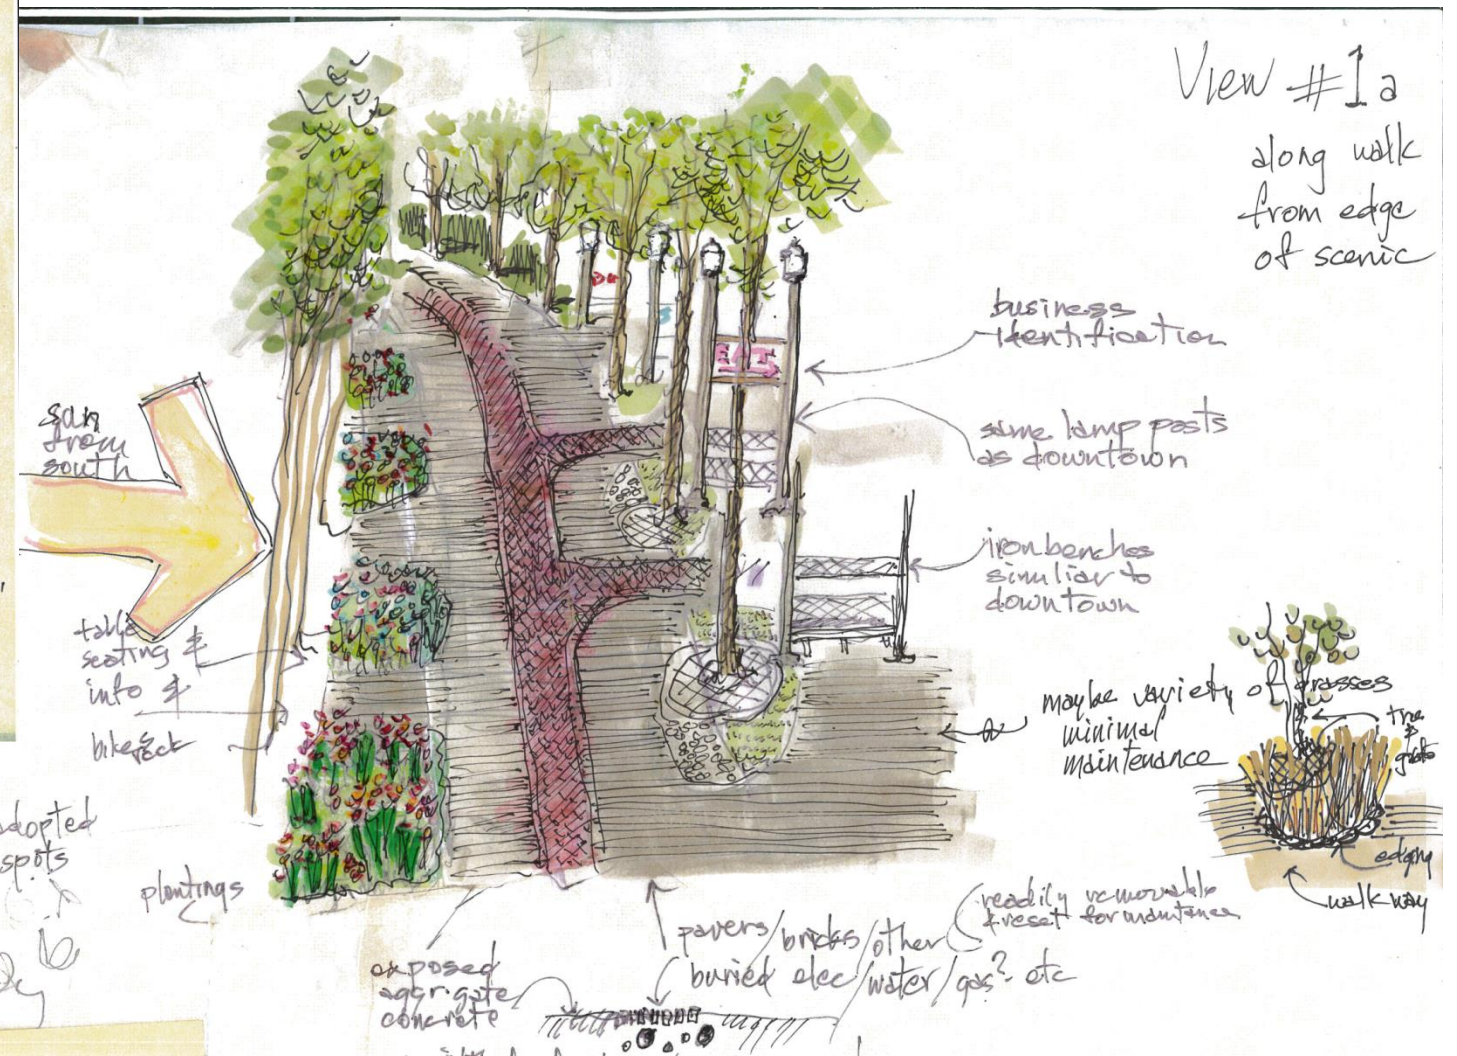 View #1a
along walk
from edge
of scenic
business
identification
EATS
same lamp posts
as downtown
iron benches
simuliar to
downtown
sun
from
south
table
seating &
info &
bike rack
maybe variety of grasses
minimal
maintenance
tree
&
grate
edging
walkway
adopted
spots
plantings
readily removable
& reset for maintance
pavers/bricks/other
buried elec/water/gas? etc
exposed
aggrigate
concrete